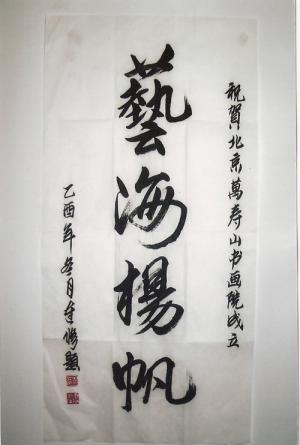 祝賀北京萬寿山书画院成立
藝海揚帆
乙酉年冬月